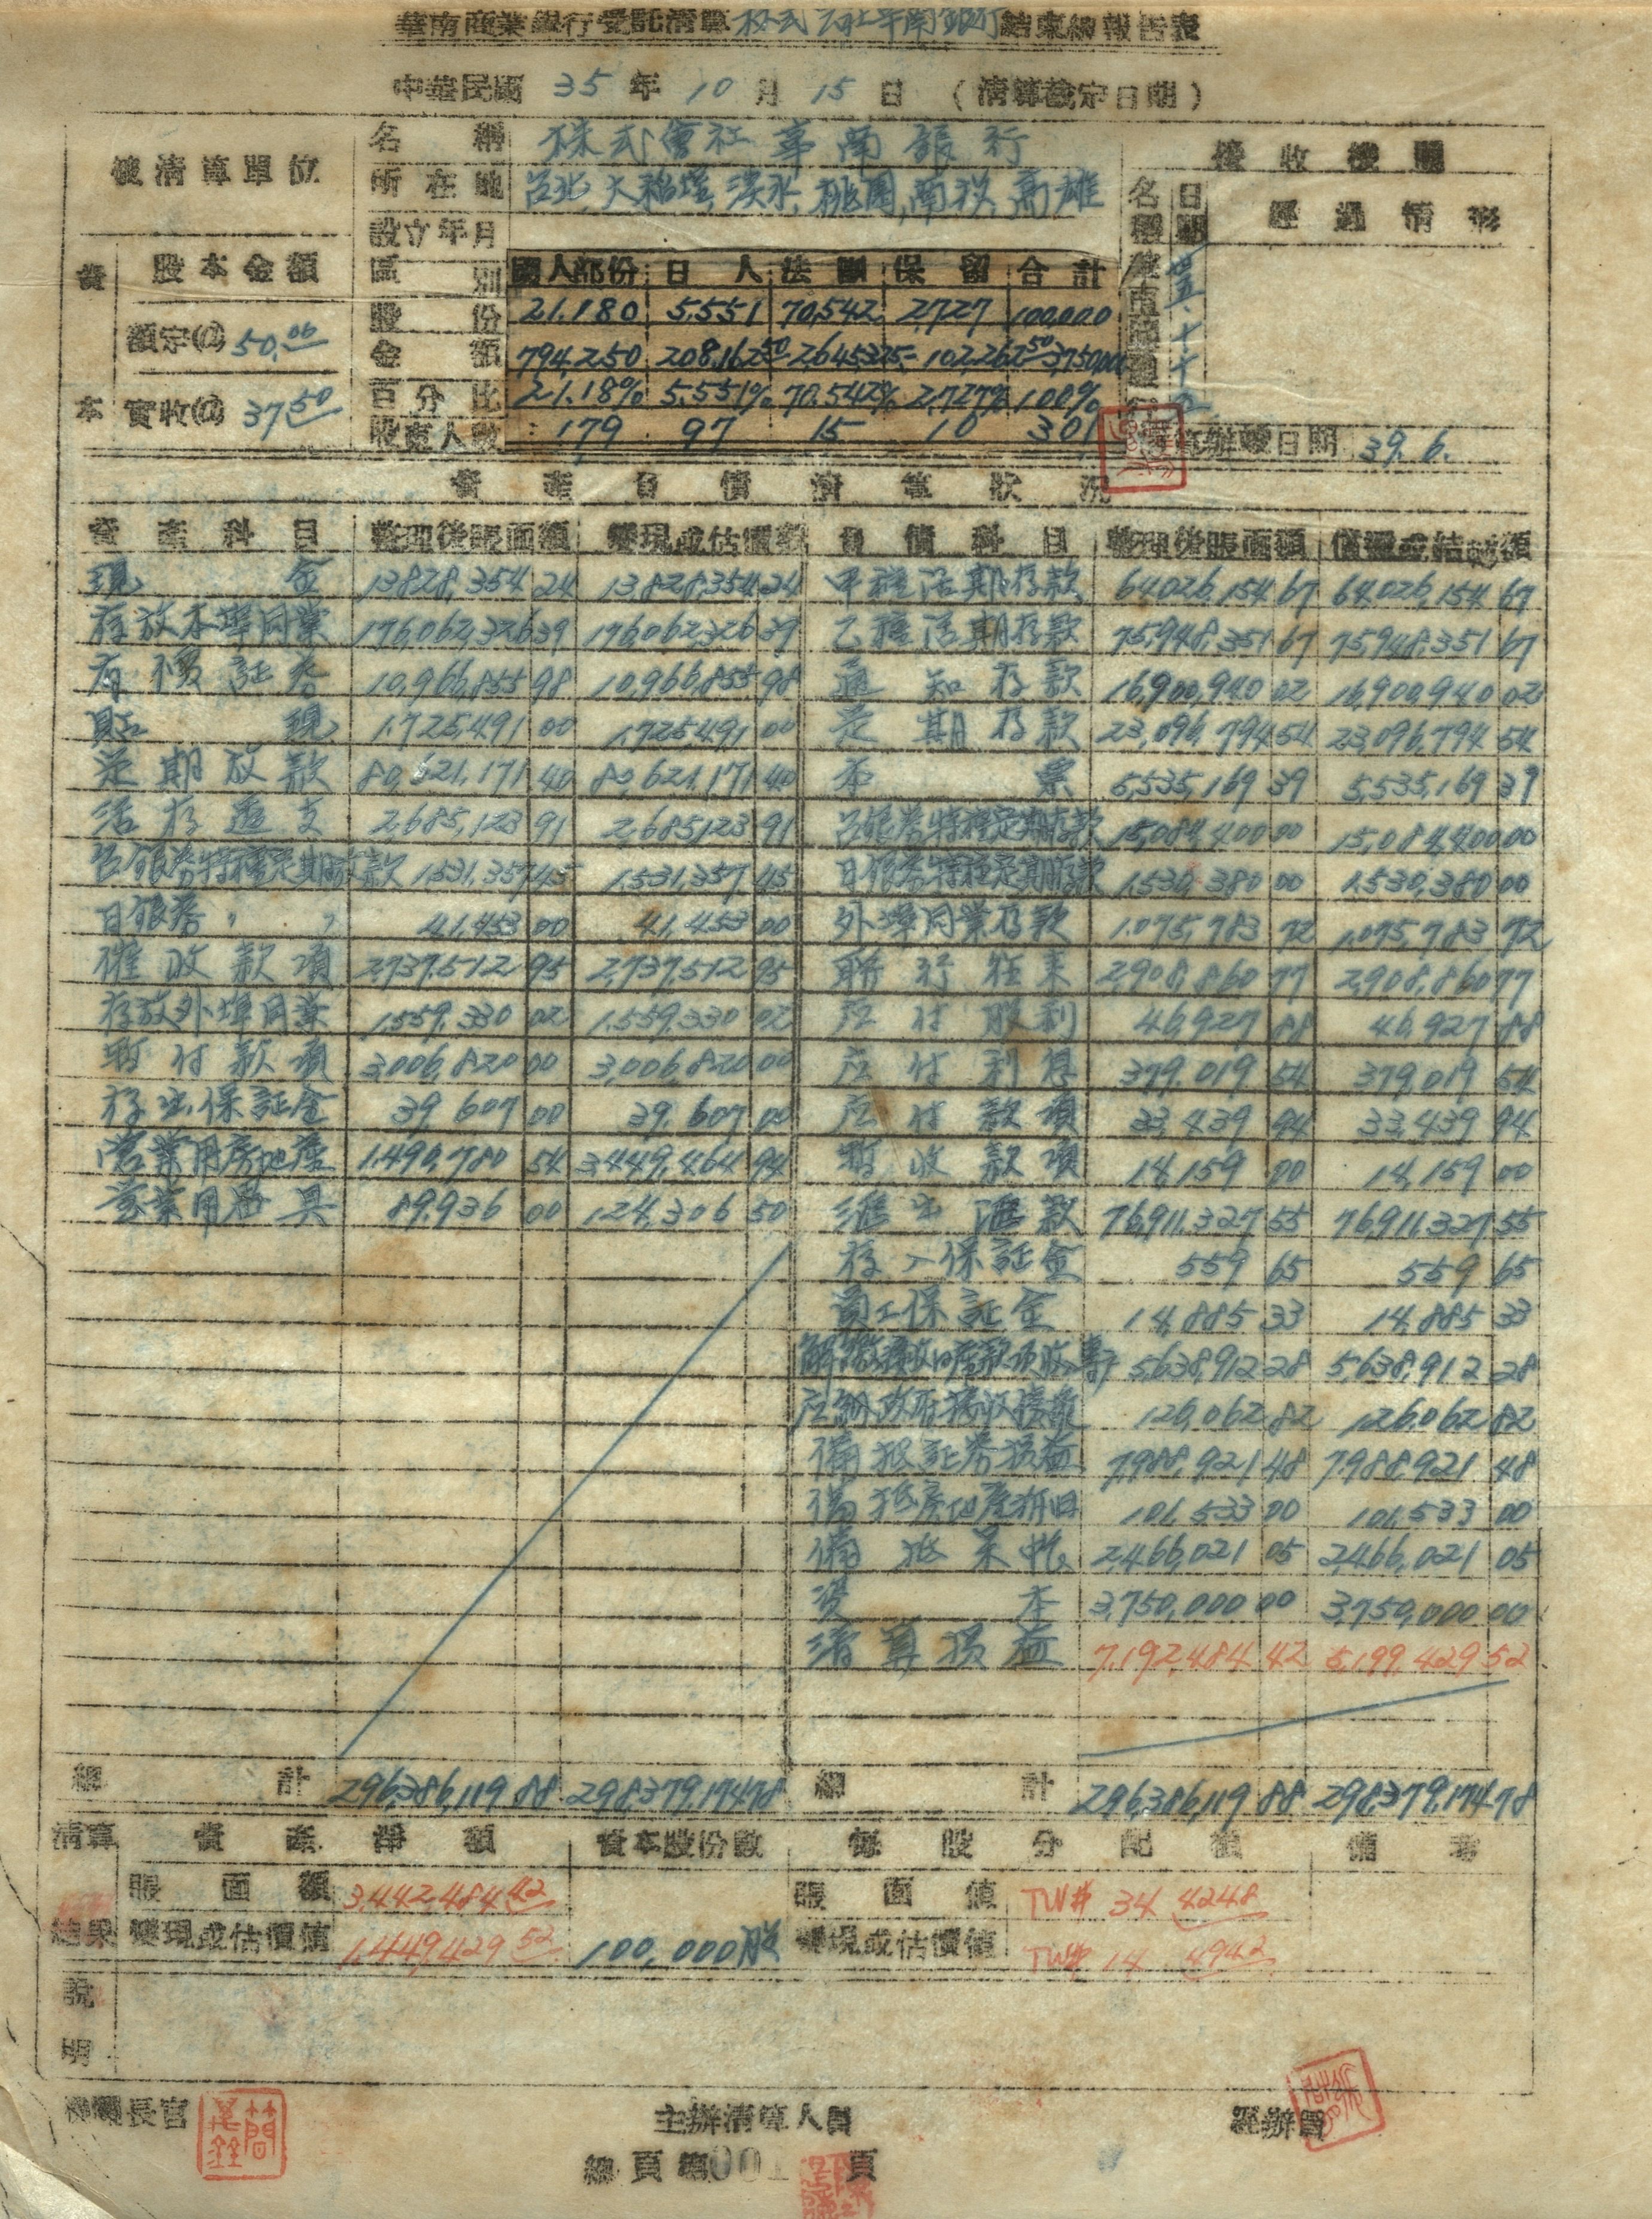 華南商業銀行受託清算株式会社華南銀行結束總報告表
中華民國 35 年 10 月 15 日 (清算裁定日期)
被清算單位
名稱 株式會社華南銀行
所在地 台北,大稻埕,淡水,桃園,南投,高雄
設立年月
接收機關
名稱 日期 經過情形
資本
股本金額
額定@ 50.00
實收@ 37.50
區別 國人部份 日人 法團 保留 合計
股份 21.180 5.551 70,542 2,727 100,000
金額 794,250 208,162.50 2,645,325- 102,262.50 3,750,000
百分比 21.18% 5.551% 70.542% 2.727% 100%
股東人數 179 97 15 10 301
清算辦竣日期 39. 6.
資產負債清算狀況
資產科目 整理後賬面額 變現或估價額 負債科目 整理後賬面額 償還或估計額
現金 13,828,354 24 13,828,354 24 甲種活期存款 64,026,154 67 64,026,154 67
存放本埠同業 176,062,326 39 176,062,326 39 乙種活期存款 75,948,351 67 75,948,351 67
有價証券 10,966,855 98 10,966,855 98 通知存款 16,900,940 02 16,900,940 02
貼現 1,725,491 00 1,725,491 00 定期存款 23,096,794 54 23,096,794 54
定期放款 80,621,171 40 80,621,171 40 本票 5,535,169 39 5,535,169 39
活存透支 2,685,123 91 2,685,123 91 台銀券特種定期存款 15,084,400 00 15,084,400 00
台銀券特種定期放款 1,531,357 45 1,531,357 45 日銀券特種定期存款 1,530,380 00 1,530,380 00
日銀券 〃 〃 41,453 00 41,453 00 外埠同業存款 1,075,783 72 1,075,783 72
催收款項 2,737,512 95 2,737,512 95 聯行往来 2,908,860 77 2,908,860 77
存放外埠同業 1,559,330 02 1,559,330 02 应付股利 46,927 88 46,927 88
暫付款項 3,006,820 00 3,006,820 00 应付利息 379,019 54 379,019 54
存出保証金 39,607 00 39,607 00 应付款項 33,439 94 33,439 94
营業用房地產 1,490,780 54 3,449,464 94 暫收款項 14,159 00 14,159 00
营業用器具 89,936 00 124,306 50 滙出滙款 76,911,327 55 76,911,327 55
存入保証金 559 65 559 65
員工保証金 14,885 33 14,885 33
5,638,912 28 5,638,912 28
应納政府接收損益 126,062 82 126,062 82
備抵証券損益 7,988,921 48 7,988,921 48
備抵房地產折旧 101,533 00 101,533 00
備抵呆帐 2,466,021 05 2,466,021 05
資本 3,750,000 00 3,750,000 00
清算損益 7,192,484 42 5,199,429 52
總計 296,386,119 88 298,379,174 78 總計 296,386,119 88 298,379,174 78
清算結果 資產淨額 資本股份數 每股分配值 備考
賬面額 3,442,484 42 賬面值 TW$ 34 4248
變現或估價值 1,449,429 52 100,000股 變現或估價值 TW$ 14 4942
說明
機關長官
主辦清算人員
經辦員
總頁第001頁